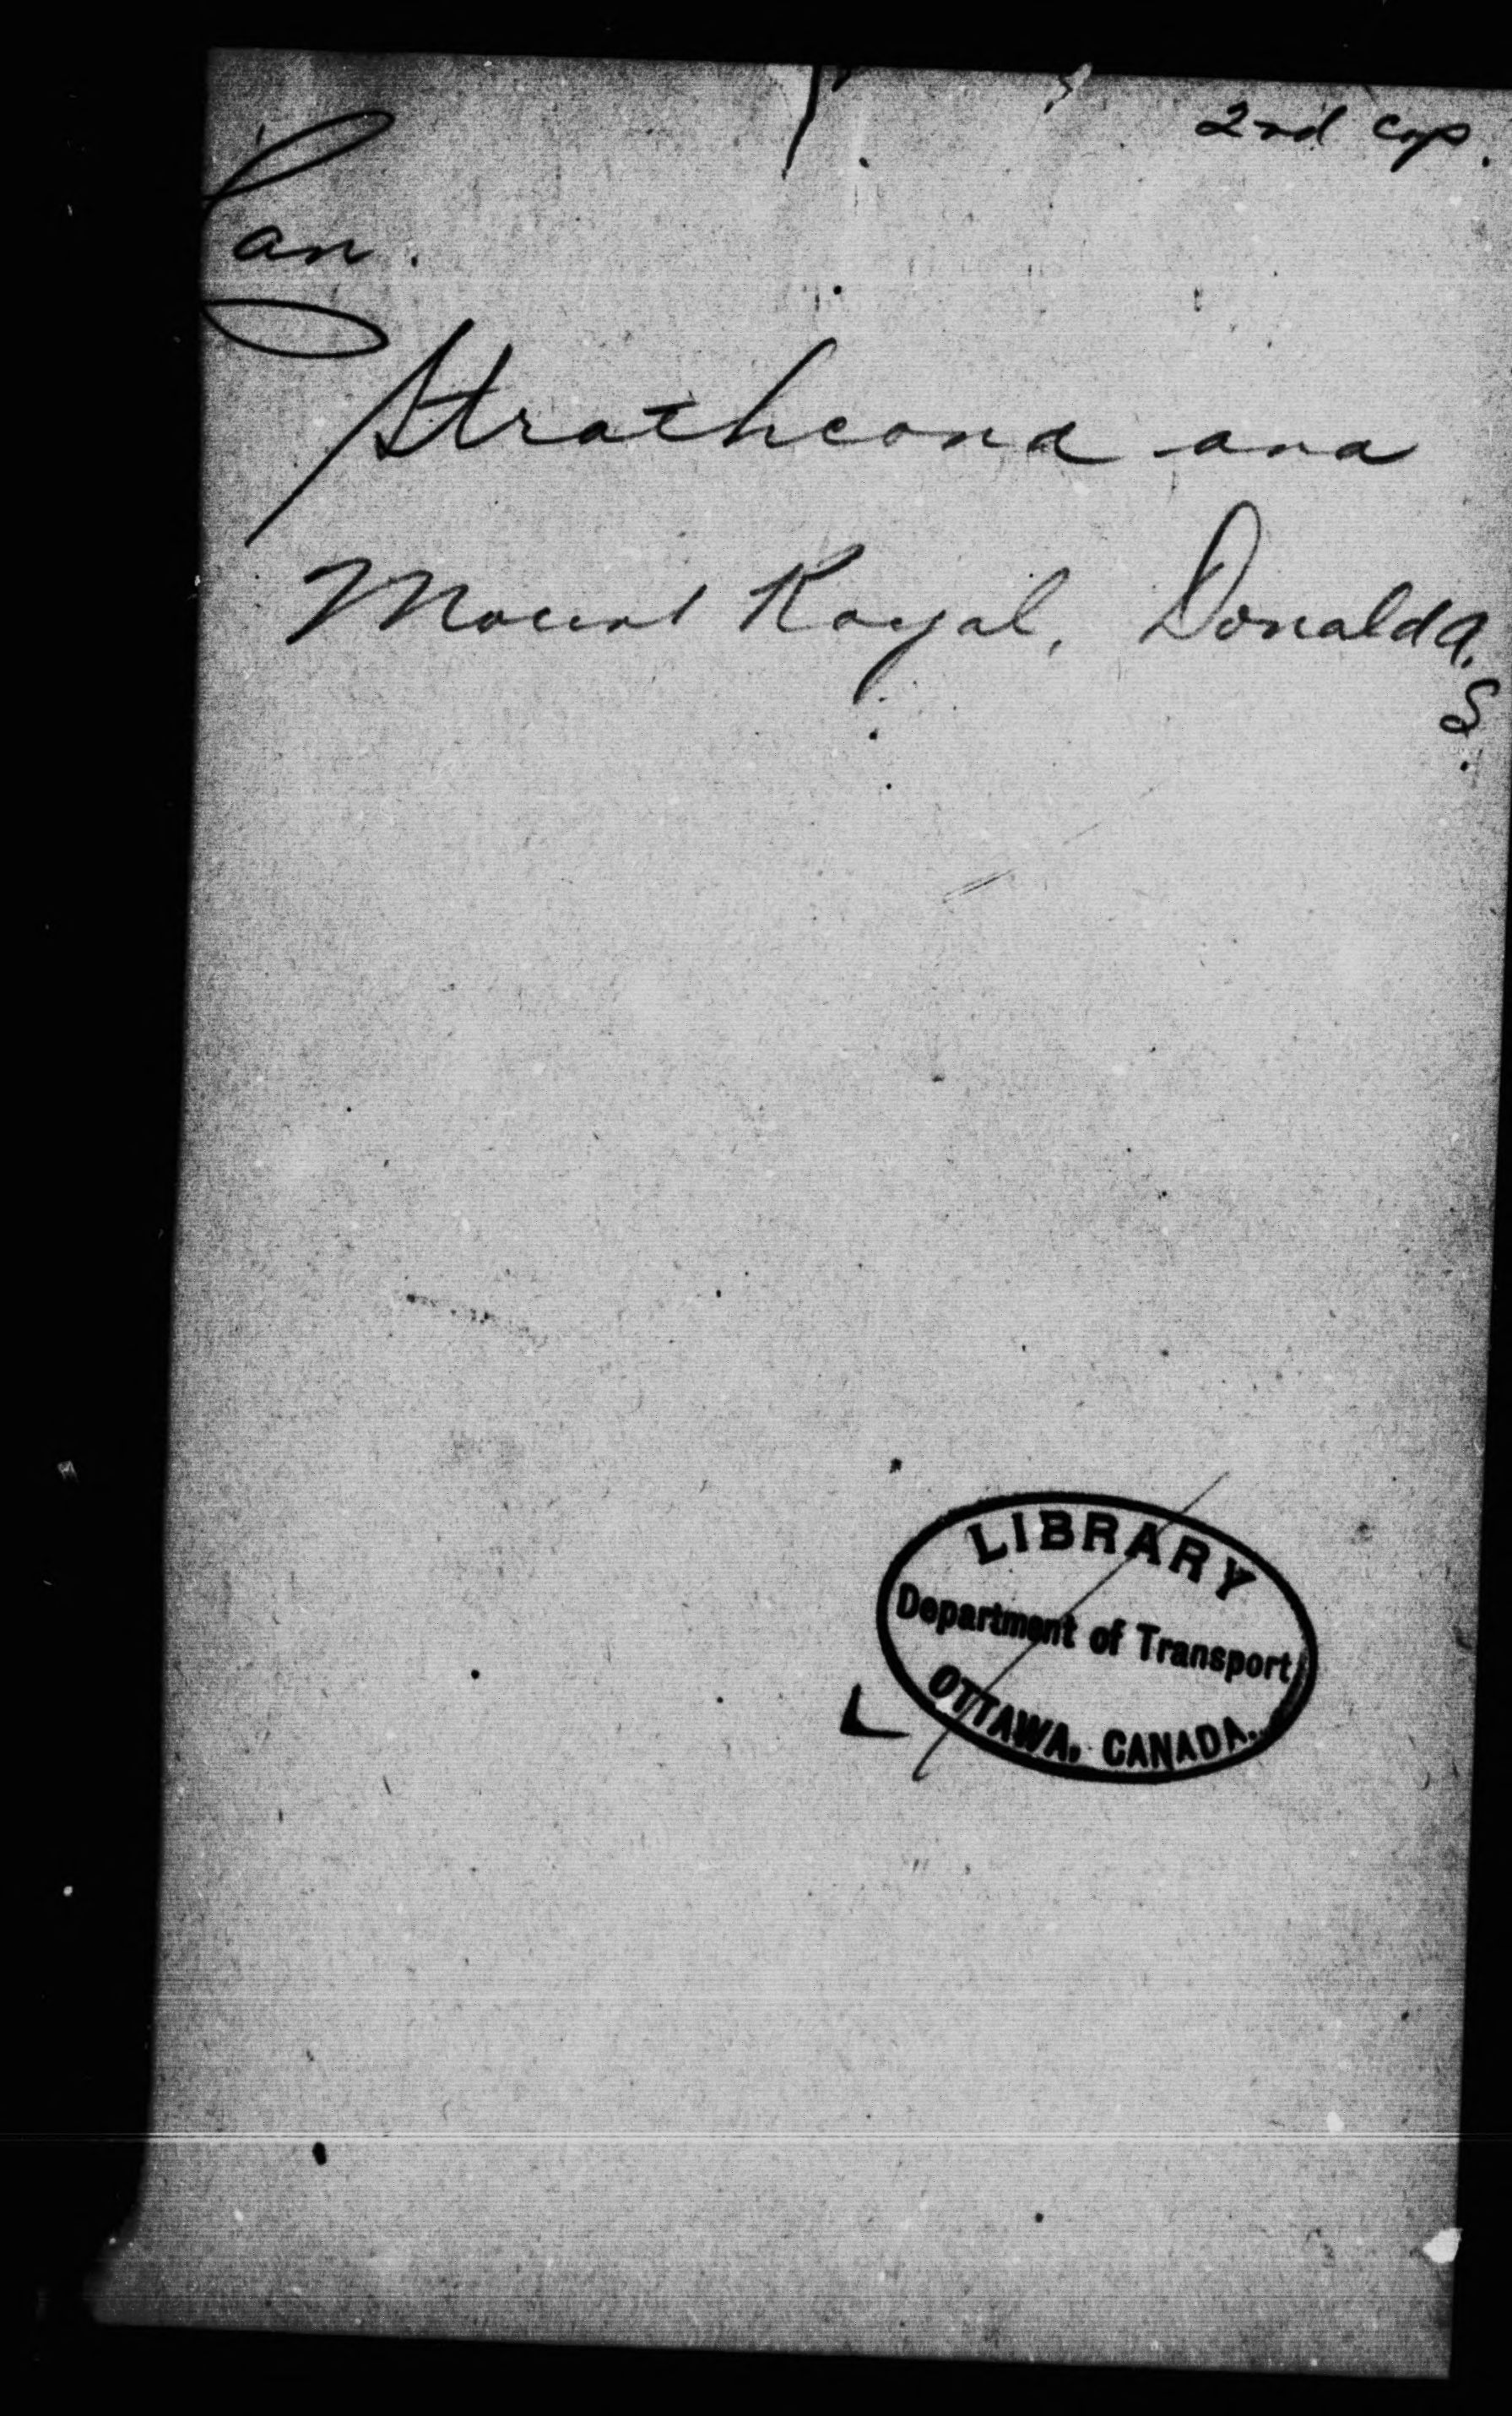 2nd cop.
Can.
Strathcona and
Mount Royal, Donald A.
S.
LIBRARY
Department of Transport
OTTAWA, CANADA.